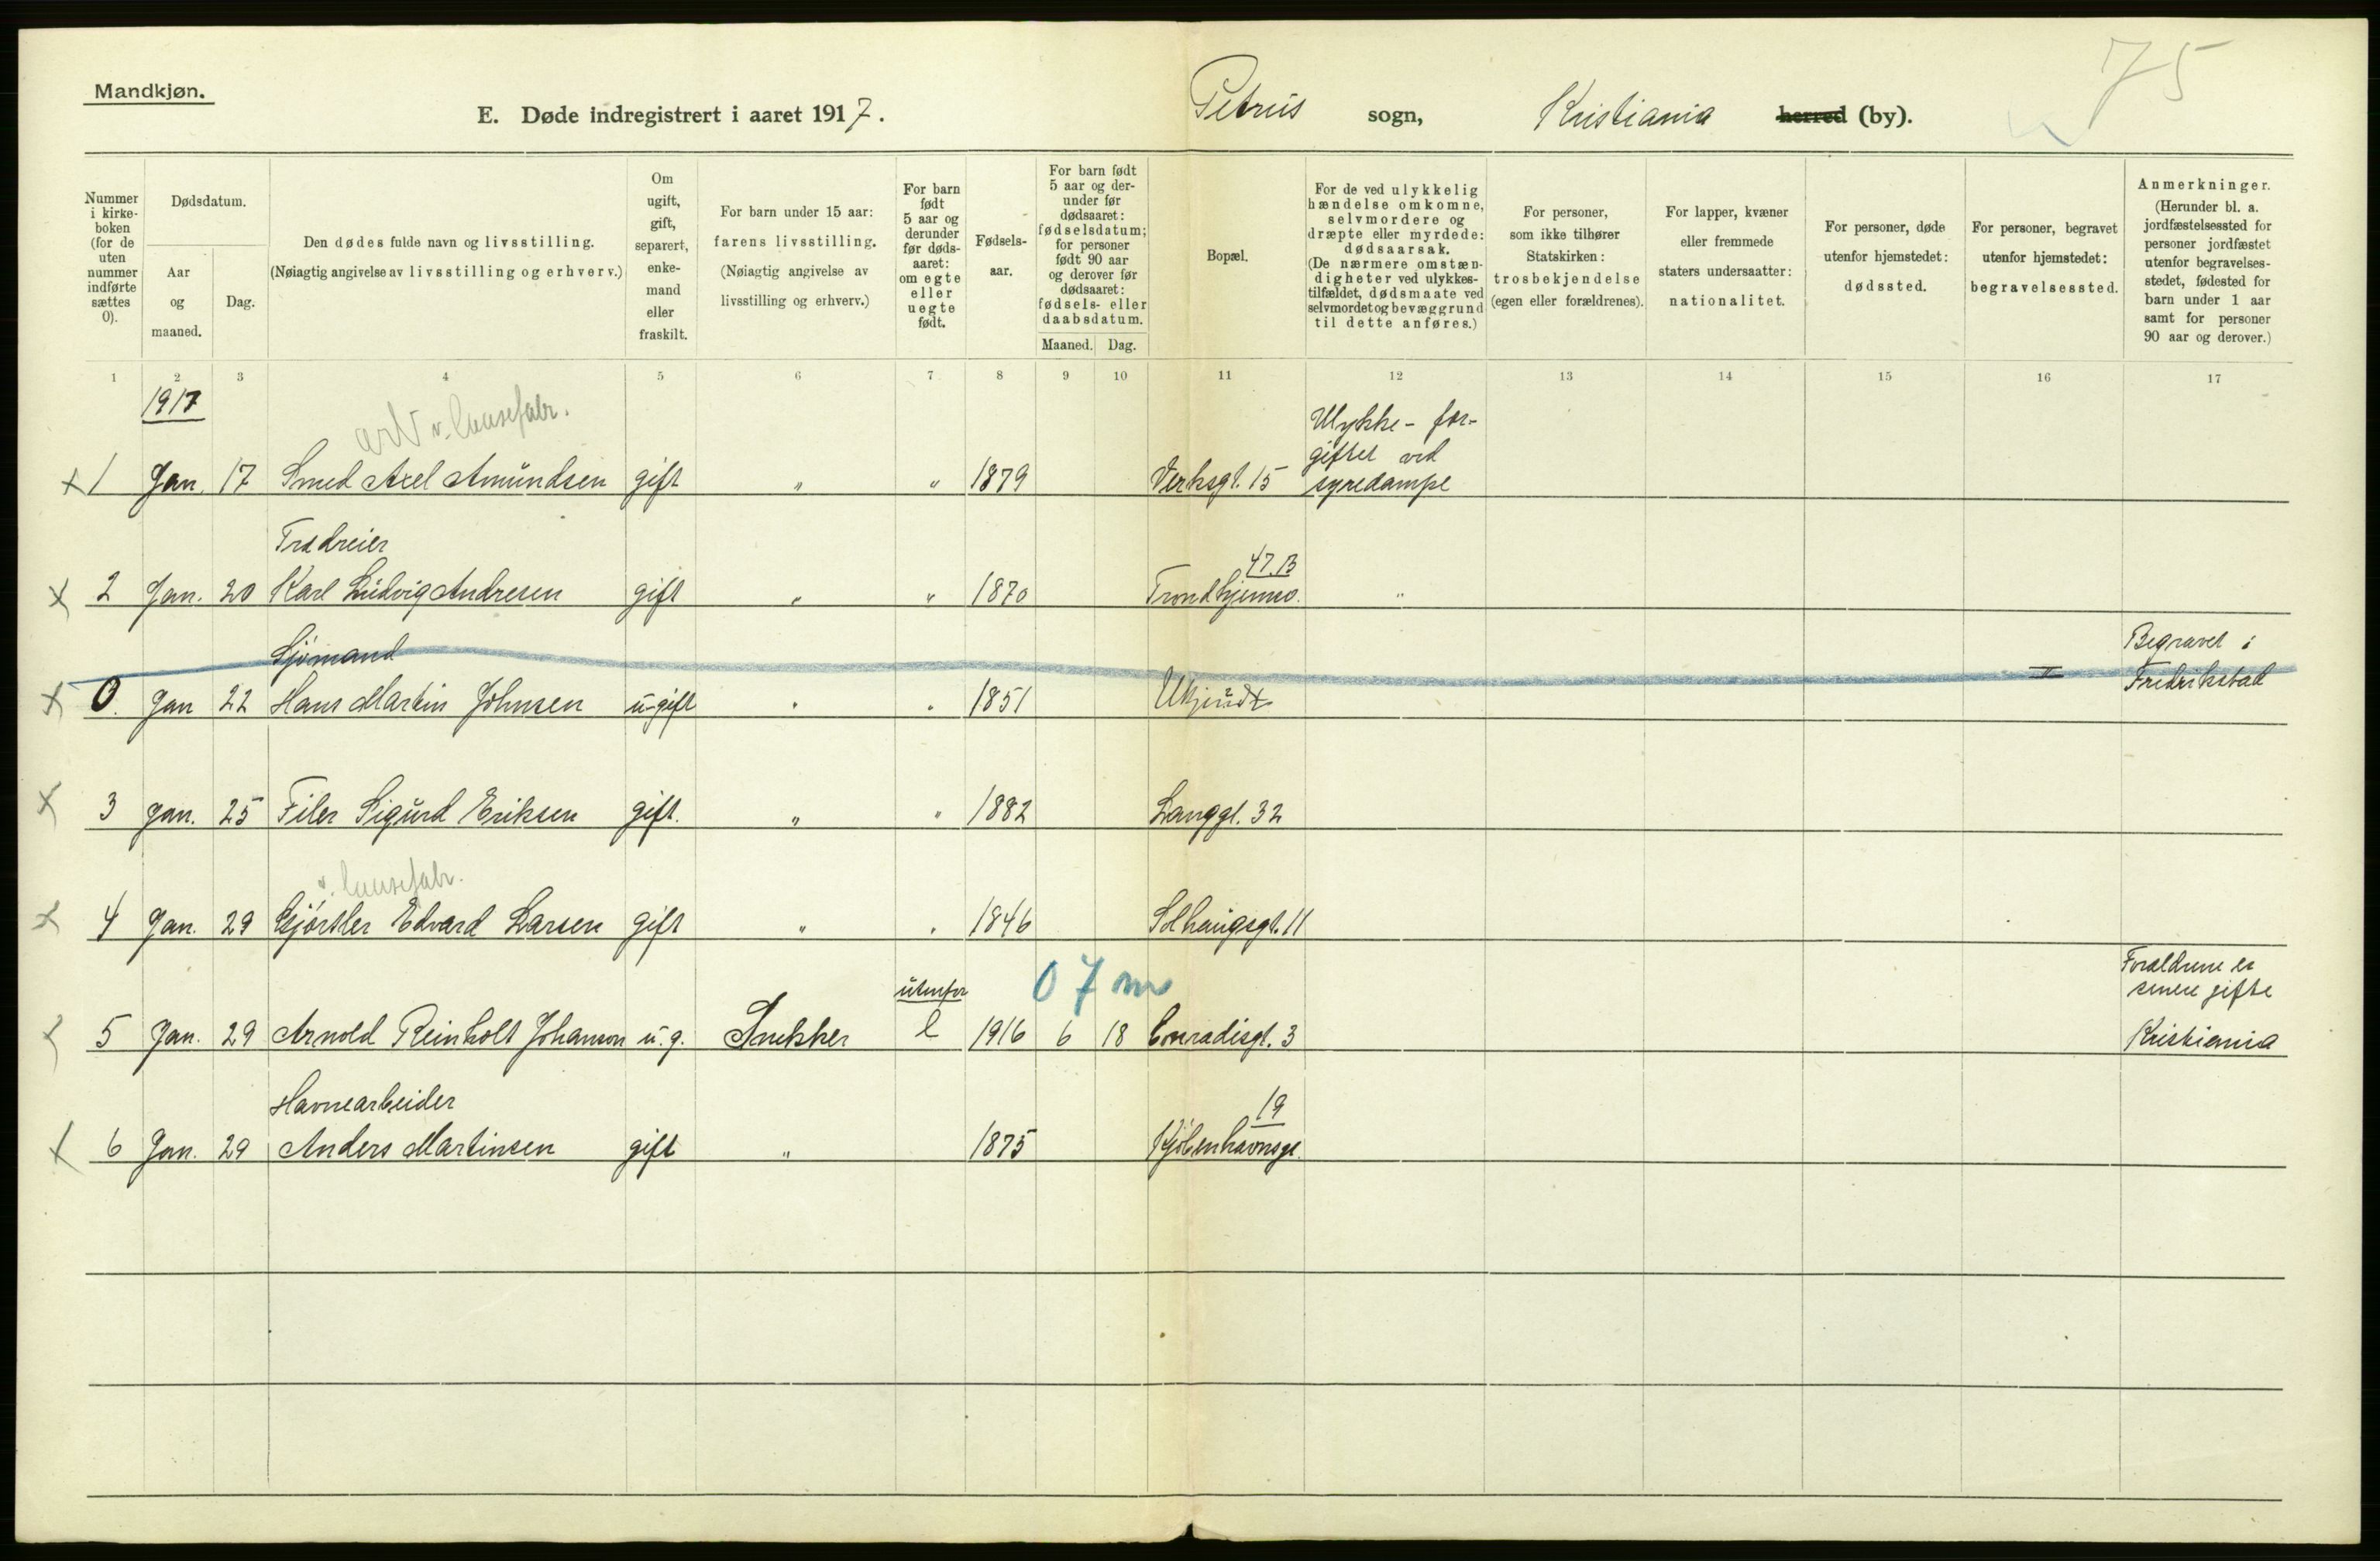 75
Mandkjøn.
E. Døde indregistrert i aaret 1917. Petrus sogn, Kristiania herred (by).
Nummer i kirke- boken (for de uten nummer indførte sættes 0).
Dødsdatum.
Aar og maaned.
Dag.
Den dødes fulde navn og livsstilling.
(Nøiagtig angivelse av livsstilling og erhverv.)
Om ugift, gift, separert, enke- mand eller fraskilt.
For barn under 15 aar: farens livsstilling. (Nøiagtig angivelse av livsstilling og erhverv.)
For barn født 5 aar og derunder før døds- aaret: om egte eller uegte født.
Fødsels- aar.
For barn født 5 aar og der- under før dødsaaret: fødselsdatum; for personer født 90 aar og derover før dødsaaret: fødsels- eller daabsdatum.
Maaned. Dag.
Bopæl.
For de ved ulykkelig hændelse omkomne, selvmordere og dræpte eller myrdede: dødsaarsak. (De nærmere omstæn- digheter ved ulykkes- tilfældet, dødsmaate ved selvmordet og bevæggrund til dette anføres.)
For personer, som ikke tilhører Statskirken: trosbekjendelse (egen eller forældrenes).
For lapper, kvæner eller fremmede staters undersaatter: nationalitet.
For personer, døde utenfor hjemstedet: dødssted.
For personer, begravet utenfor hjemstedet: begravelsessted.
Anmerkninger. (Herunder bl. a. jordfæstelsessted for personer jordfæstet utenfor begravelses- stedet, fødested for barn under 1 aar samt for personer 90 aar og derover.)
1 2 3 4 5 6 7 8 9 10 11 12 13 14 15 16 17
1917
Ulykke - for-
giftet ved
x 1 Jan. 17 Smed Axel Amundsen gift " " 1879 Verksgt. 15 syredampe
Trædreier 47.B
x 2 Jan. 20 Karl Ludvig Andresen gift " " 1870 Trondhjemsv. "
Sjømand Begravet i
x 0. Jan 22 Hans Martin Johnsen ugift " " 1851 Ukjendt Fredrikstad
x 3 Jan. 25 Filer Sigurd Eriksen gift. " " 1882 Langgt. 32
x 4 Jan. 29 Gjørtler Edvard Larsen gift " " 1846 Solhaugsgt. 11
utenfor 0 7 m Forældrene er
senere gifte
x 5 Jan. 29 Arnold Reinholt Johanson u.g. Snekker 1916 6 18 Conradisgt. 3 Kristiania
Havnearbeider 19
x 6 Jan. 29 Anders Martinsen gift " 1875 Kjøbenhavnsgt.